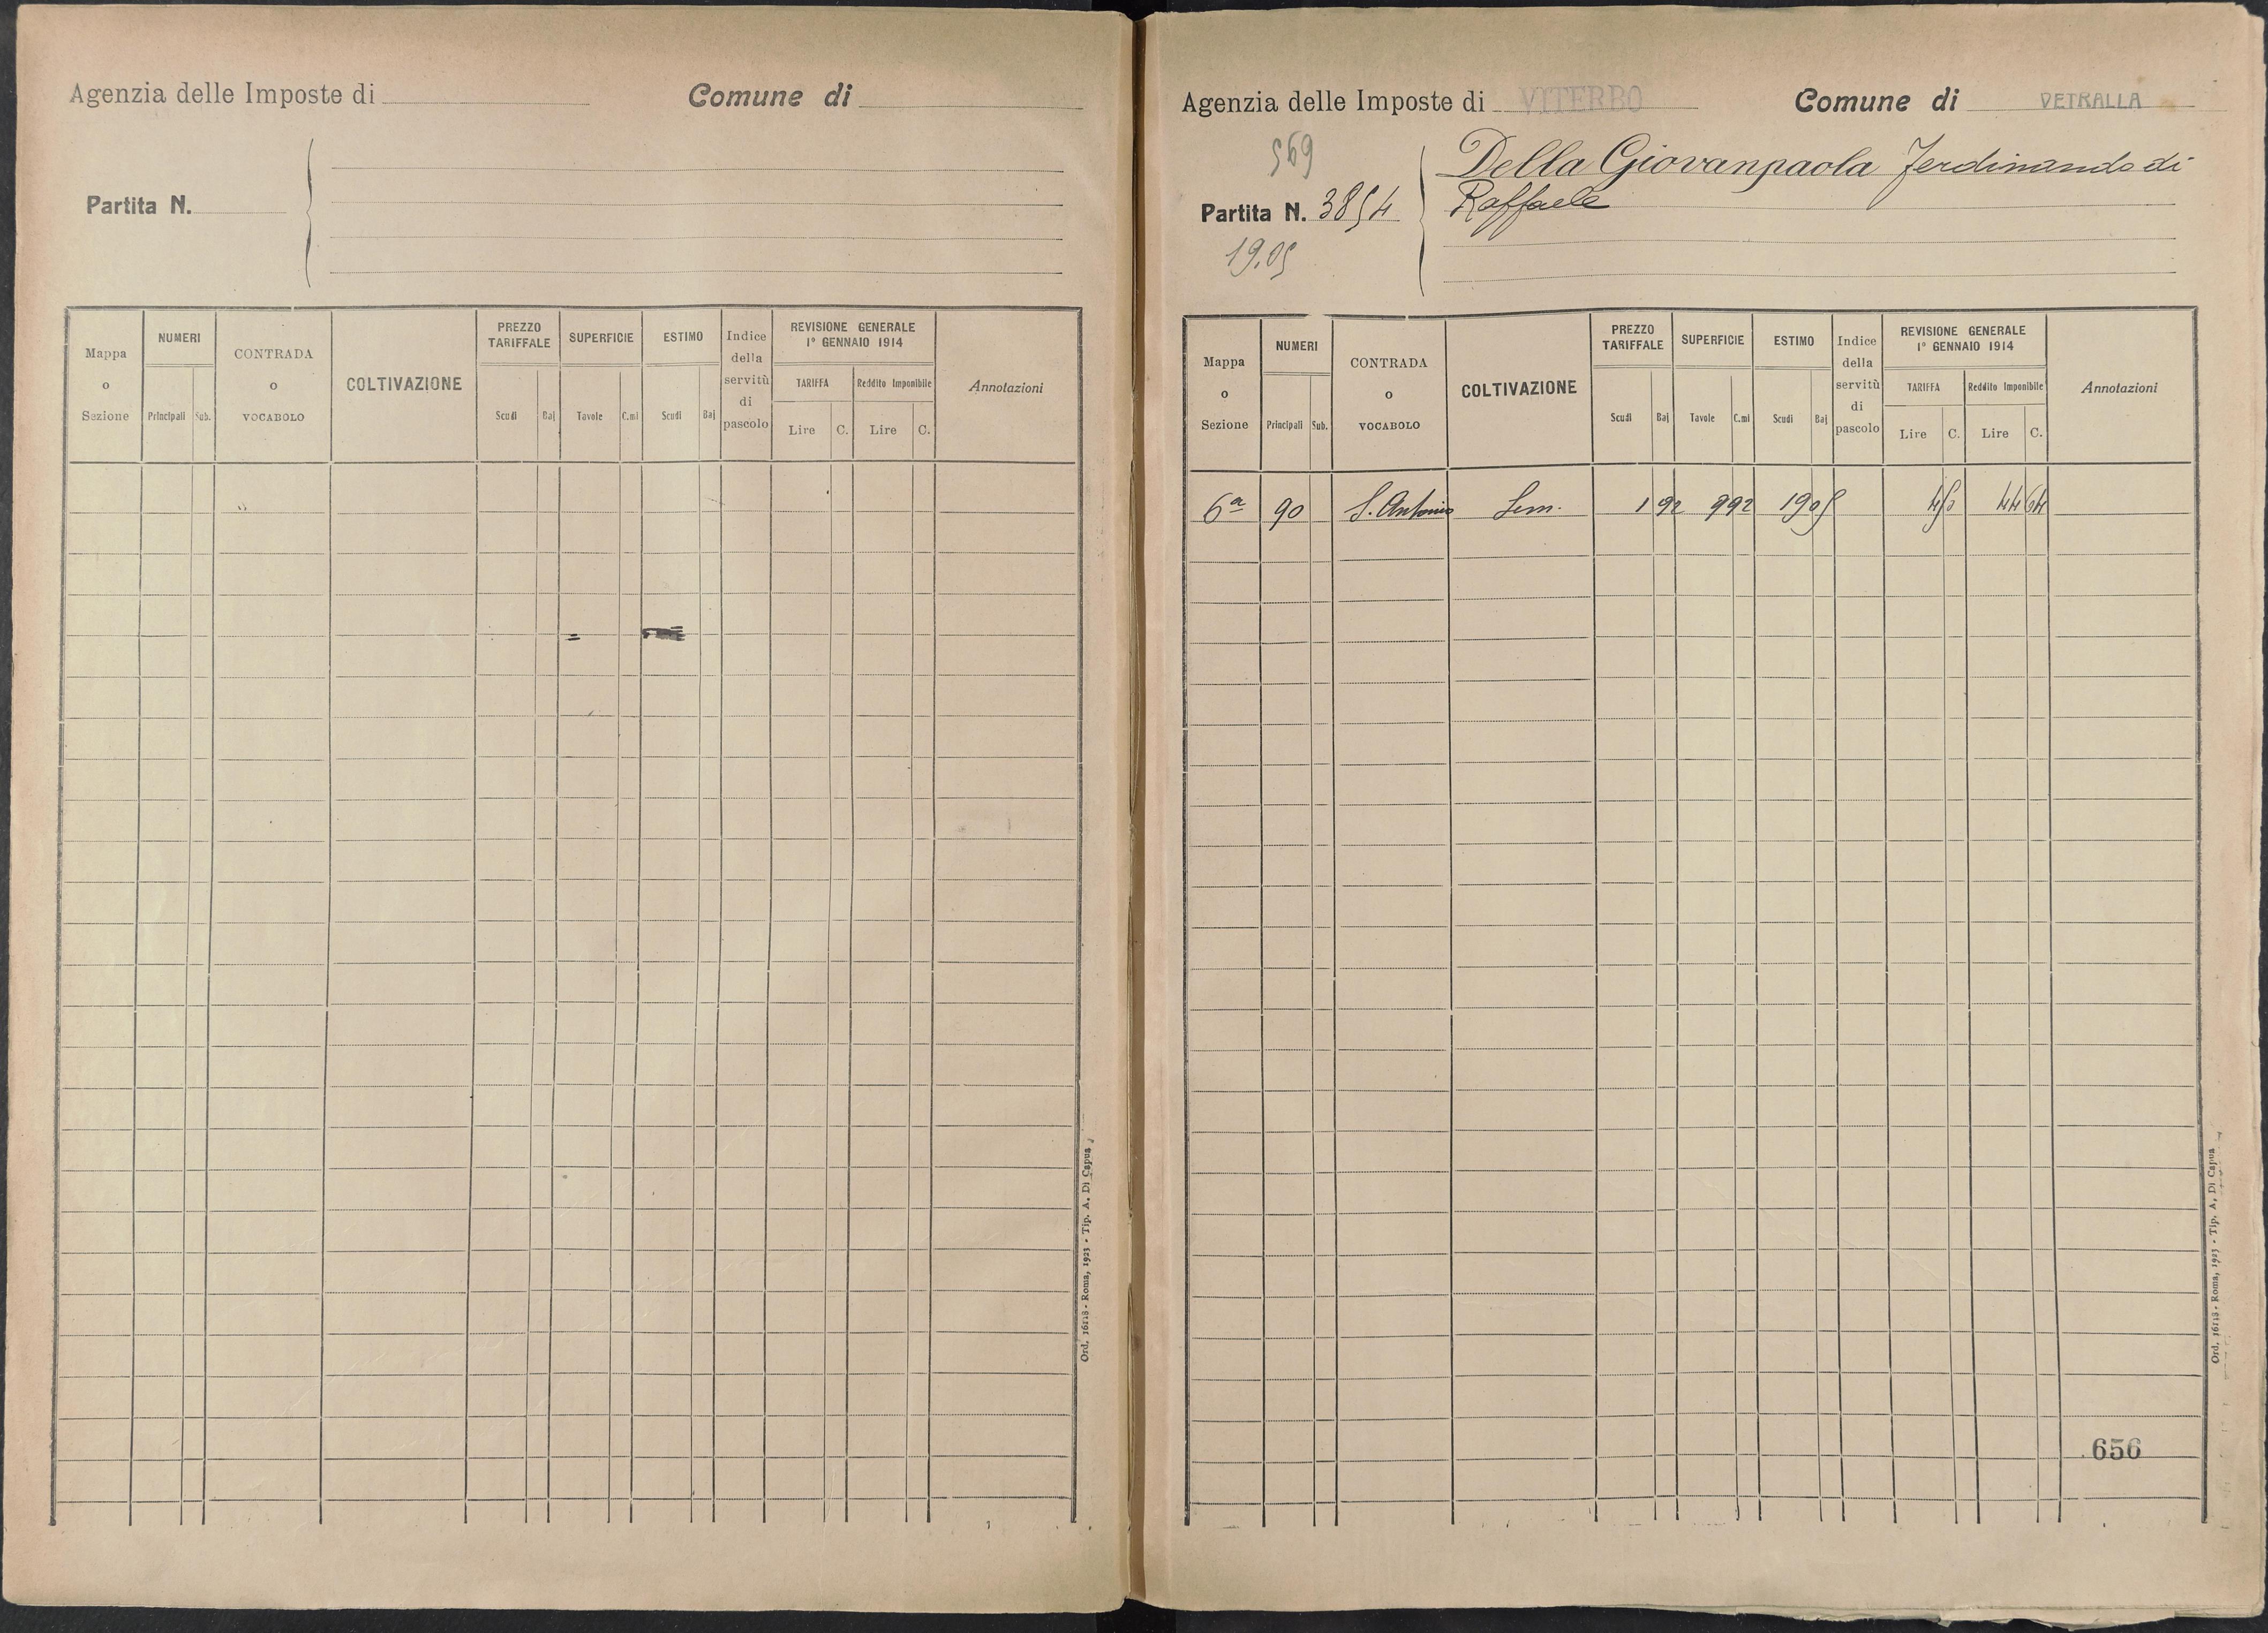 Agenzia delle Imposte di
Comune di
Partita N.
Mappa o Sezione
NUMERI
Principali Sub.
CONTRADA o VOCABOLO
COLTIVAZIONE
PREZZO TARIFFALE
Scudi Baj
SUPERFICIE
Tavole C.mi
ESTIMO
Scudi Baj
Indice della servitù di pascolo
REVISIONE GENERALE
1° GENNAIO 1914
TARIFFA
Lire C.
Reddito Imponibile
Lire C.
Annotazioni
Ord. 16118 - Roma, 1923 - Tip. A. Di Capua
Agenzia delle Imposte di VITERBO
Comune di VETRALLA
569
Partita N. 3854
19.05
Della Giovanpaola Ferdinando di
Raffaele
Mappa o Sezione
NUMERI
Principali Sub.
CONTRADA o VOCABOLO
COLTIVAZIONE
PREZZO TARIFFALE
Scudi Baj
SUPERFICIE
Tavole C.mi
ESTIMO
Scudi Baj
Indice della servitù di pascolo
REVISIONE GENERALE
1° GENNAIO 1914
TARIFFA
Lire C.
Reddito Imponibile
Lire C.
Annotazioni
6a 90 S. Antonio Sem. 1 92 9 92 19 05 4 50 44 64
656
Ord. 16118 - Roma, 1923 - Tip. A. Di Capua